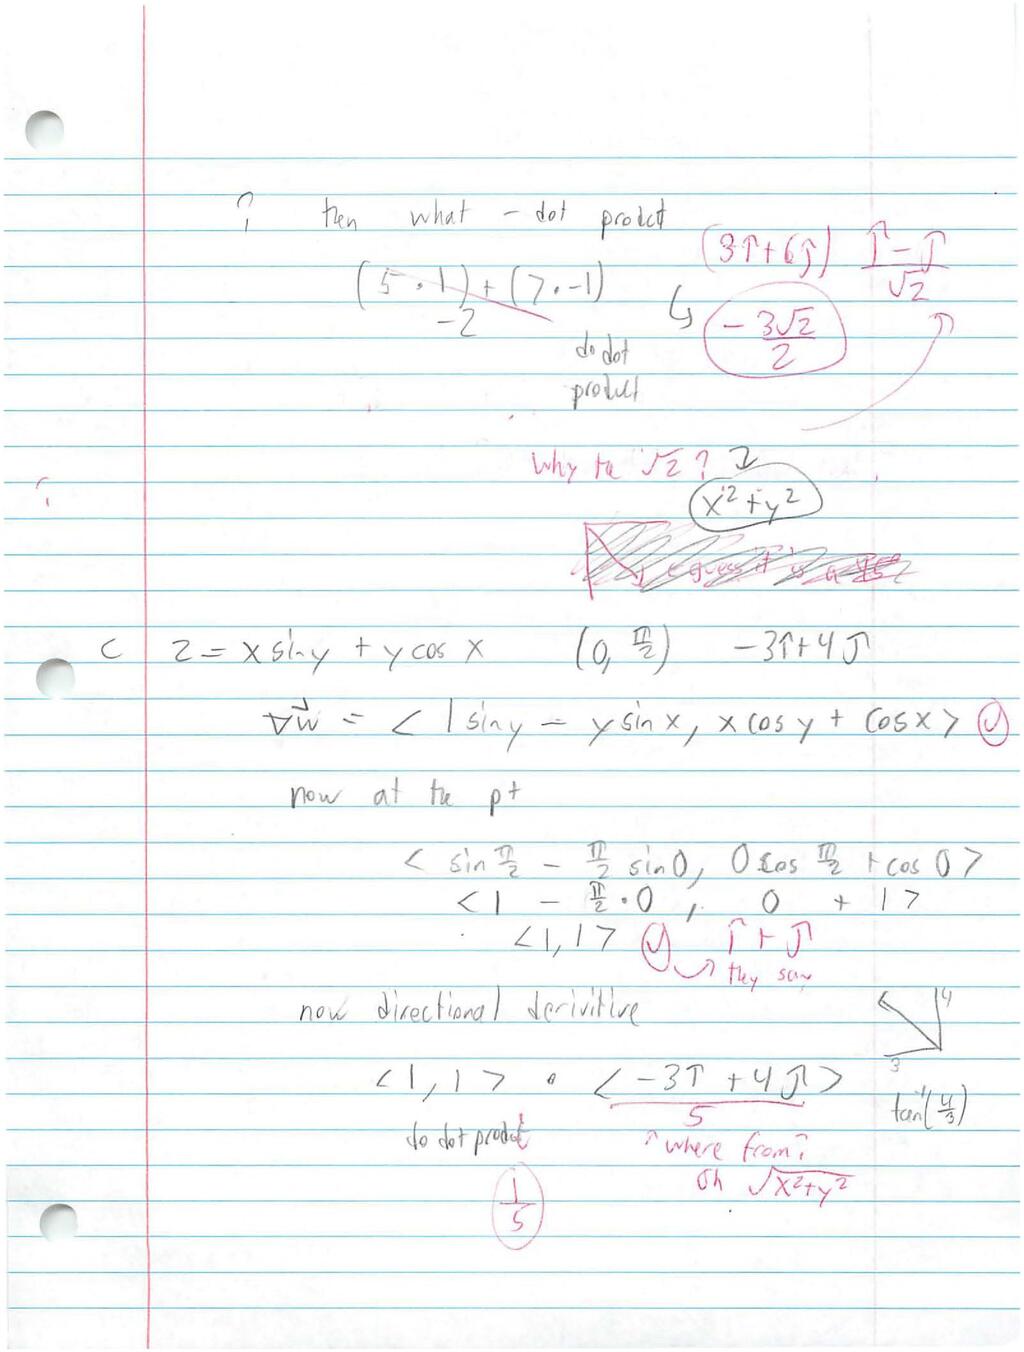 ? then what - dot product
(3î+6ĵ) (î-ĵ)/√2
(5·1)+(7·-1)
-2
↳ -3√2/2
do dot
product
Why the √2?
x²+y²
I guess it is a 45°
C z = x sin y + y cos x (0, π/2) -3î+4ĵ
∇w⃗ = < 1 sin y - y sin x, x cos y + cos x > ✓
now at the pt
< sin π/2 - π/2 sin 0, 0 cos π/2 + cos 0 >
< 1 - π/2 · 0, 0 + 1 >
<1,1> ✓ î+ĵ
→ they say
now directional derivitive
4
3
<1,1> · <-3î+4ĵ>/5
tan⁻¹(4/3)
do dot product
↑ where from?
oh √x²+y²
1/5